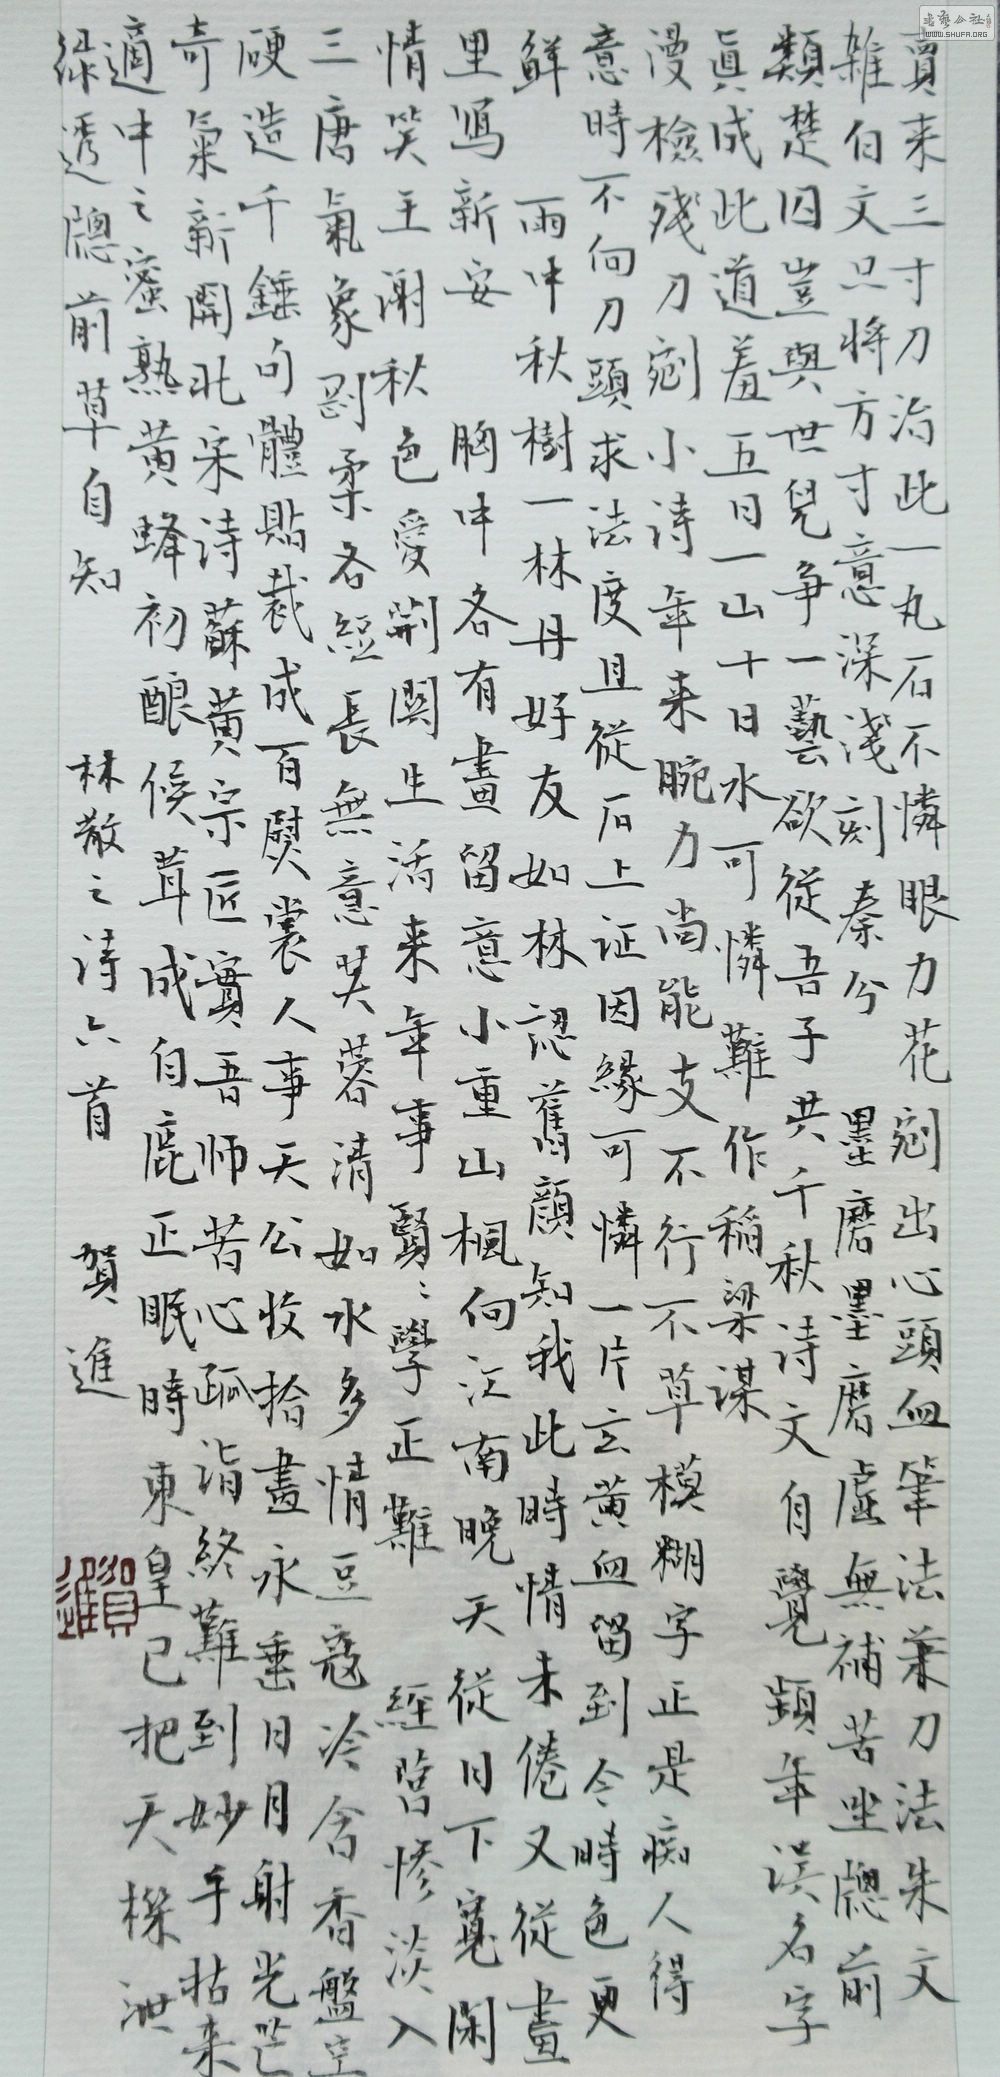 買来三寸刀治此一丸石不憐眼力花剜出心頭血筆法兼刀法朱文
雜白文只将方寸意深淺刻秦兮 墨磨墨磨虛無補苦坐牕前
類楚囚豈與世兒争一藝欲從吾子共千秋诗文自覺頻年误名字
真成此道羞五日一山十日水可憐難作稲粱谋
漫檢殘刀剜小诗 年来腕力尚能支不行不草模糊字正是痴人得
意時不向刀頭求法度且從石上证因緣可憐一片玄黄血留到今時色更
鮮 雨中秋樹一林丹好友如林認舊顔知我此時情未倦又從畫
里寫新安 胸中各有畫留意小重山楓向江南晚天從日下寬閑
情笑王謝秋色愛荆關生活来年事賢〻學正難 經营惨淡入
三唐氣象剛柔各經長無意芙蓉清如水多情豆寇冷含香盤空
硬造千錘句體貼裁成百熨裳人事天公收拾盡永垂日月射光芒
奇氣新開北宋诗蘇黄宗匠實吾师苦心孤诣終難到妙手拈来
適中之蜜熟黄蜂初酿候茸成白鹿正眠時東皇已把天機泄
绿透牕前草自知 林散之诗六首 贺進
書藝公社
WWW.SHUFA.ORG
賀進